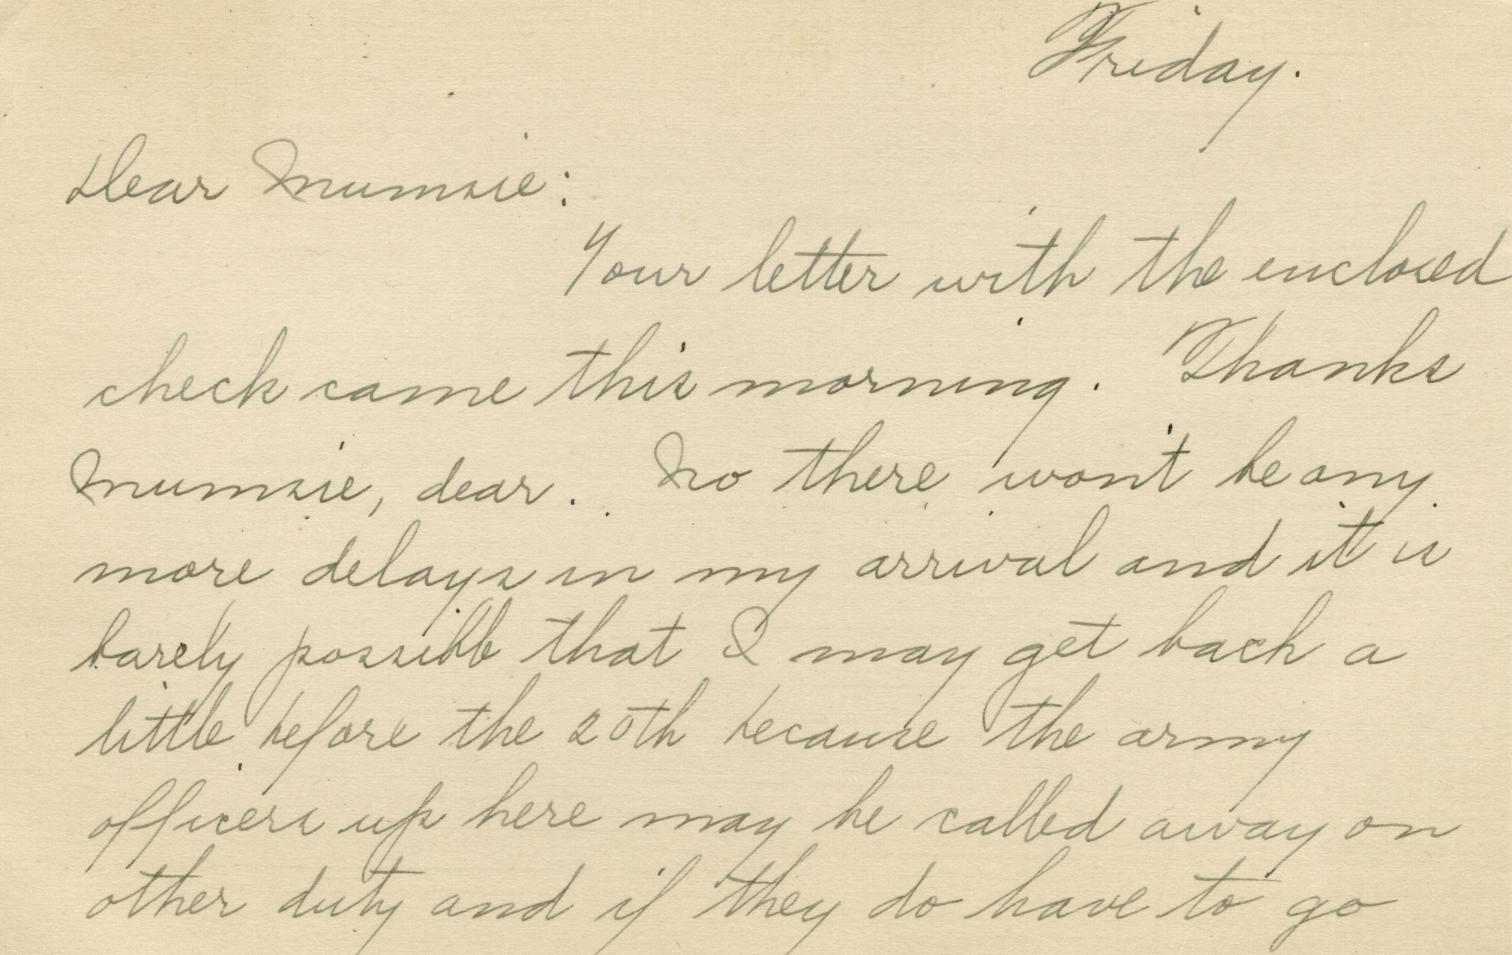 Friday.
Dear Mumsie:
Your letter with the enclosed
check came this morning. Thanks
Mumsie, dear. No there won't be any
more delays in my arrival and it is
barely possible that I may get back a
little before the 20th because the army
officers up here may be called away on
other duty and if they do have to go